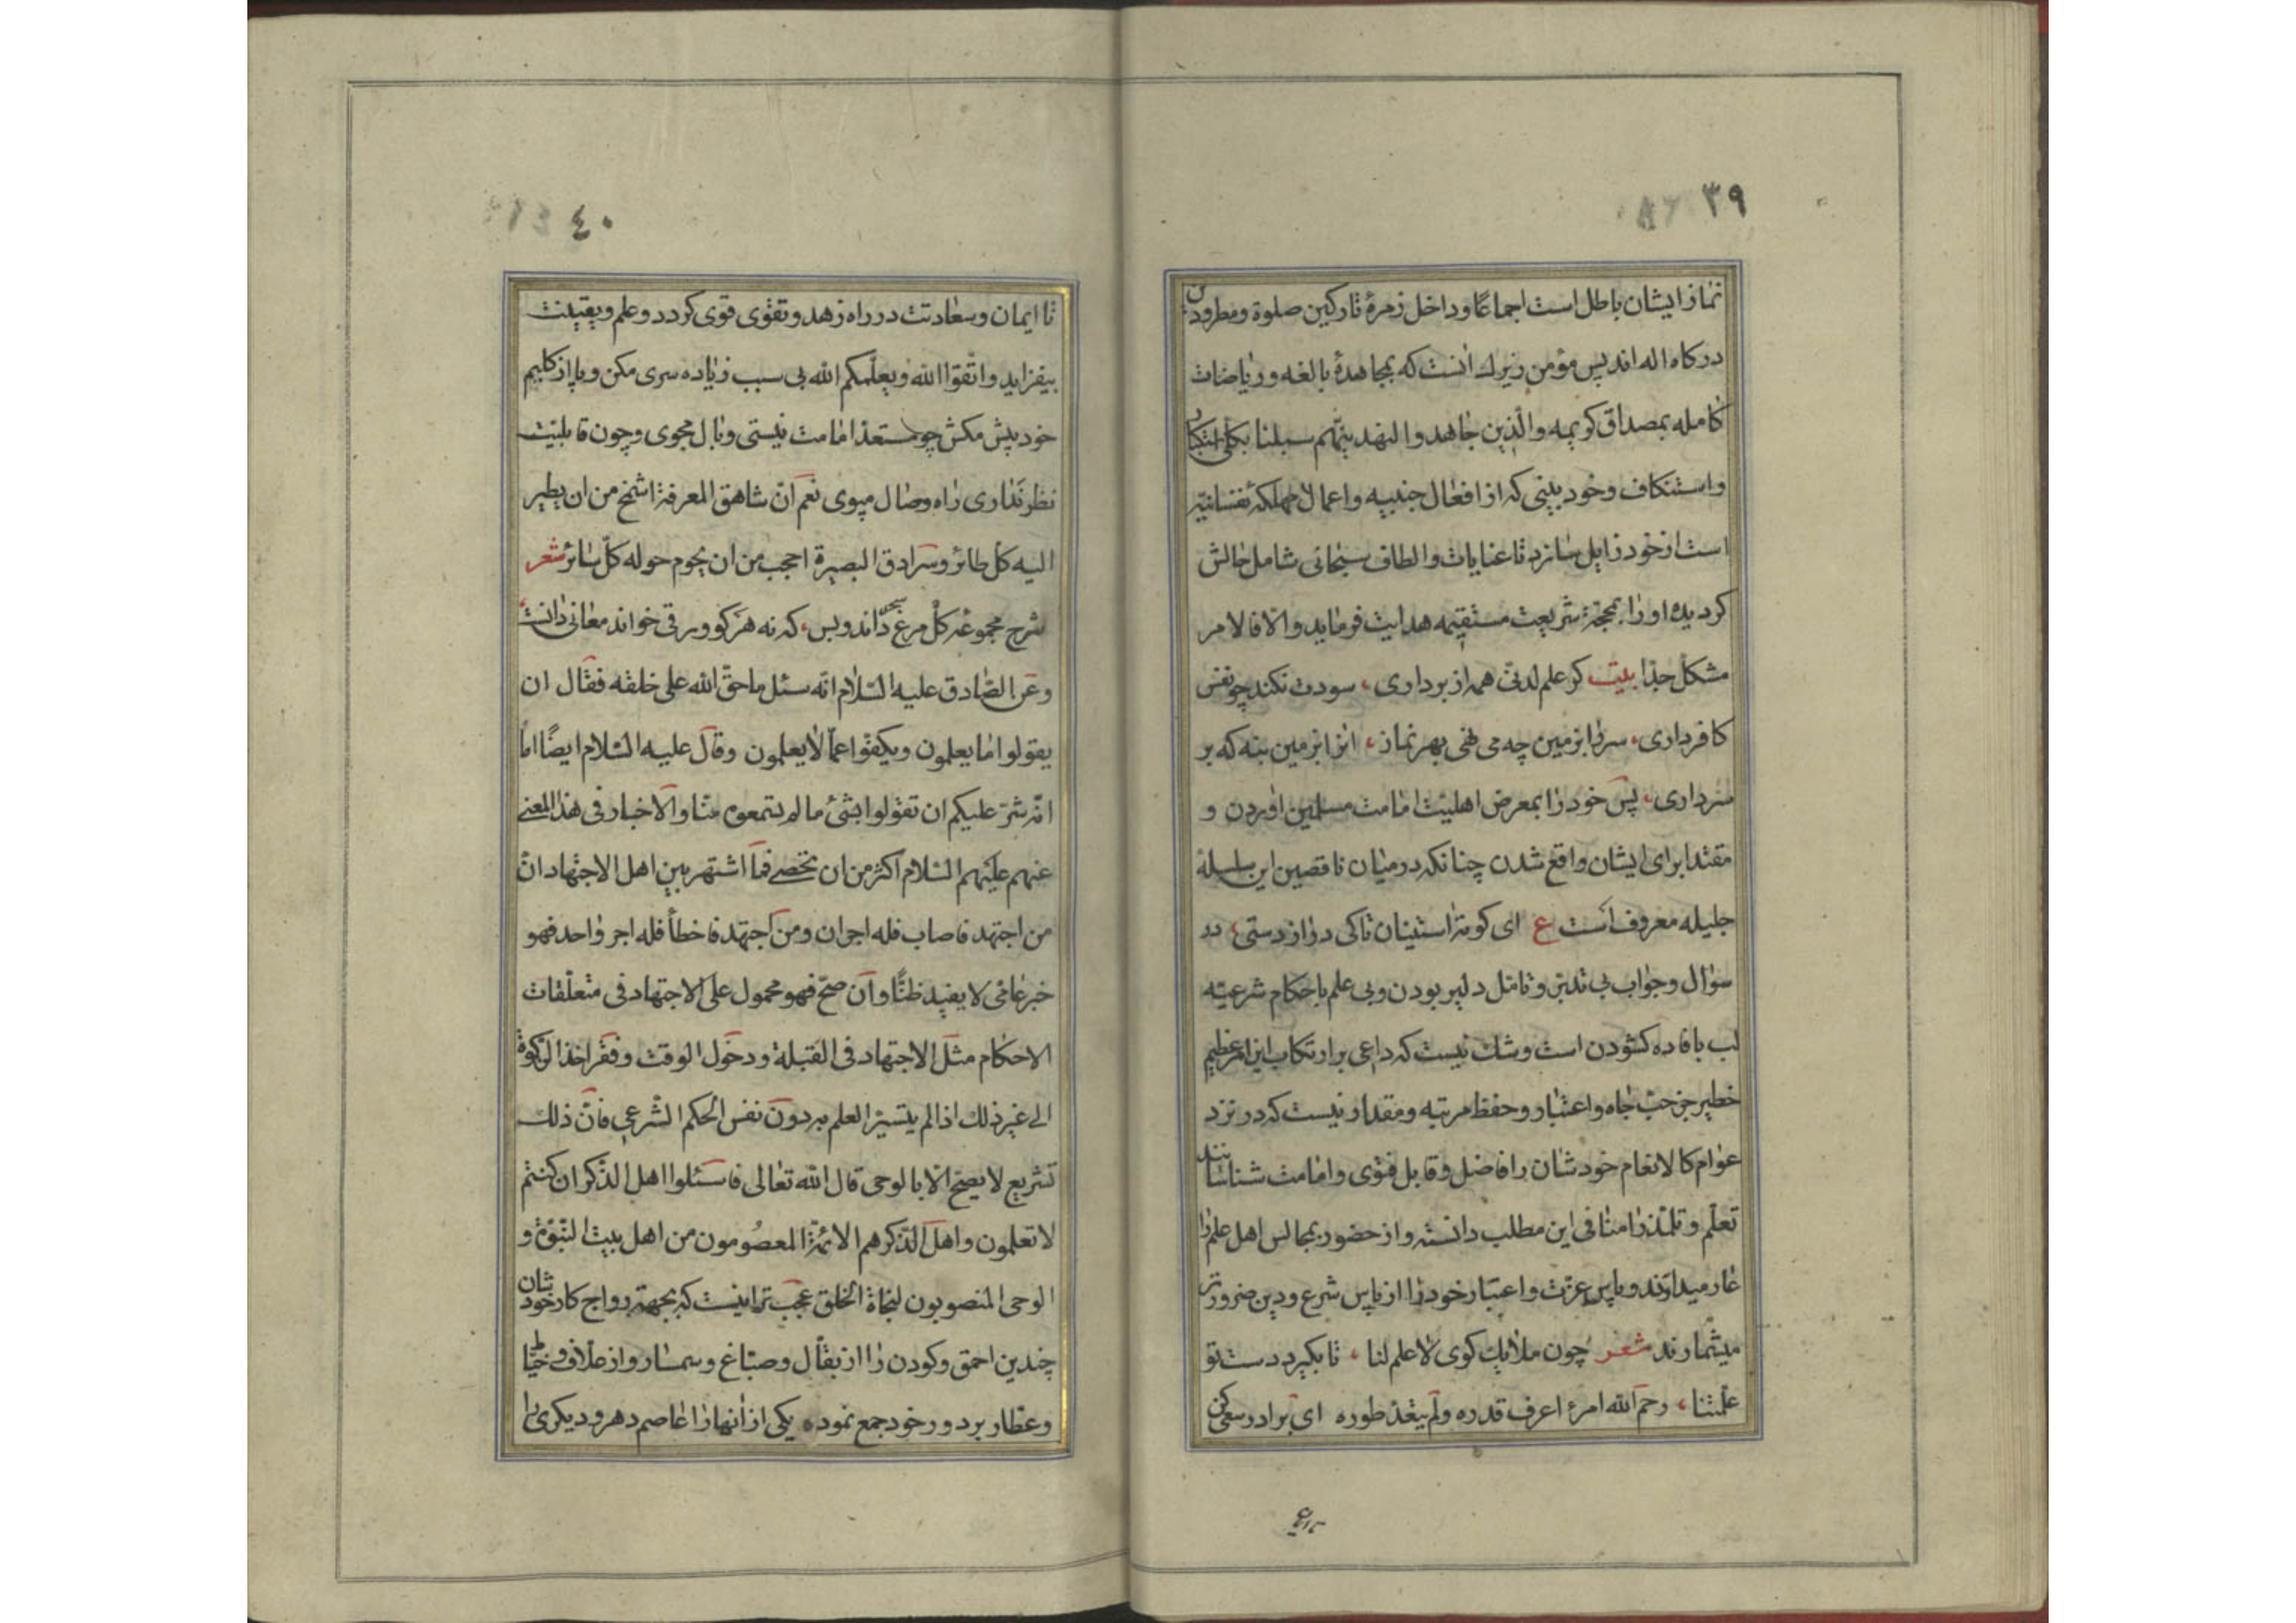 ۳۹
نماز ایشان باطل است اجماعًا و داخل زمرهٔ تارکین صلوة و مطرودین
درکاه اله اند پس مؤمن زیرك انست که بمجاهدهٔ بالغه و ریاضات
کامله بمصداق کریمه والّذین جاهدوا لنهدینّهم سبلنا بکلّی استکبار
و استنکاف و خود بینی که از افعال جنبیه و اعمال مهلکهٔ نفسانیّه
است از خود زایل سازد تا عنایات و الطاف سبحانی شامل حالش
کردیده او را بمحجّهٔ شریعت مستقیمه هدایت فرماید و الّا فالامر
مشکل جدّا بیت کر علم لدنّی همه از بر داری، سودت نکند چو نفس
کافر داری، سر را بزمین چه می نهی بهر نماز، انرا بزمین بنه که بر
سر داری، پس خود را بمعرض اهلیّت امامت مسلمین اوردن و
مقتدا برای ایشان واقع شدن چنانکه در میان ناقصین این سلسلهٔ
جلیله معروف است ع ای کوته استینان تاکی دراز دستی، در
سؤال و جواب بی تدبّر و تامّل دلیر بودن و بی علم باحکام شرعیّه
لب بافاده کشودن است و شك نیست که داعی بر ارتکاب این امر عظیم
خطیر جز حبّ جاه و اعتبار و حفظ مرتبه و مقدار نیست که در نزد
عوام کالانعام خودشان را فاضل و قابل فتوی و امامت شناسانند
تعلّم و تلمّذ را منافی این مطلب دانسته و از حضور بمجالس اهل علم را
عار میدانند و پاس عزّت و اعتبار خود را از پاس شرع و دین ضرورتر
میشمارند شعر چون ملایك کوی لا علم لنا، تا بکیرد دست تو
علّمتنا، رحم الله امرءً اعرف قدره ولم یتعدّ طوره ای برادر سعی کن
٤٠
تا ایمان و سعادتت در راه زهد و تقوی قوی کردد و علم و یقینت
بیفزاید واتّقوا الله ویعلّمکم الله بی سبب زیاده سری مکن و پا از کلیم
خود پیش مکش چو مستعد امامت نیستی وبال مجوی و چون قابلیّت
نظر نداری راه وصال مپوی نعم انّ شاهق المعرفة اشمخ من ان یطیر
الیه کلّ طائر وسرادق البصیرة احجب من ان یحوم حوله کلّ سائر شعر
شرح مجموعهٔ کل مرغ سحر داند و بس، که نه هر کو ورقی خواند معانی دانست
وعن الصّادق علیه السّلام انّه سئل ما حقّ الله علی خلقه فقال ان
یقولوا ما یعلمون ویکفّوا عمّا لا یعلمون وقال علیه السّلام ایضًا اما
انّه شرّ علیکم ان تقولوا بشیٔ ما لم تسمعوه منّا والاخبار فی هذا المعنی
عنهم علیهم السّلام اکثر من ان تحصی فما اشتهر بین اهل الاجتهاد انّ
من اجتهد فاصاب فله اجران ومن اجتهد فاخطأ فله اجر واحد فهو
خبر عامّی لا یفید ظنًّا وان صحّ فهو محمول علی الاجتهاد فی متعلّقات
الاحکام مثل الاجتهاد فی القبلة ودخول الوقت وفقر اخذ الزکوة
الی غیر ذلك اذا لم یتیسّر العلم به دون نفس الحکم الشّرعی فانّ ذلك
تشریع لا یصحّ الّا بالوحی قال الله تعالی فاسئلوا اهل الذّکر ان کنتم
لا تعلمون واهل الذّکر هم الائمّة المعصومون من اهل بیت النّبوّة و
الوحی المنصوبون لنجاة الخلق عجب تر اینست که بجهة رواج کار خودشان
چندین احمق و کودن را از بقّال و صبّاغ و سمسار و از علّاف و خیّاط
و عطّار بر دور خود جمع نموده یکی از آنها را عاصم دهر و دیکری را